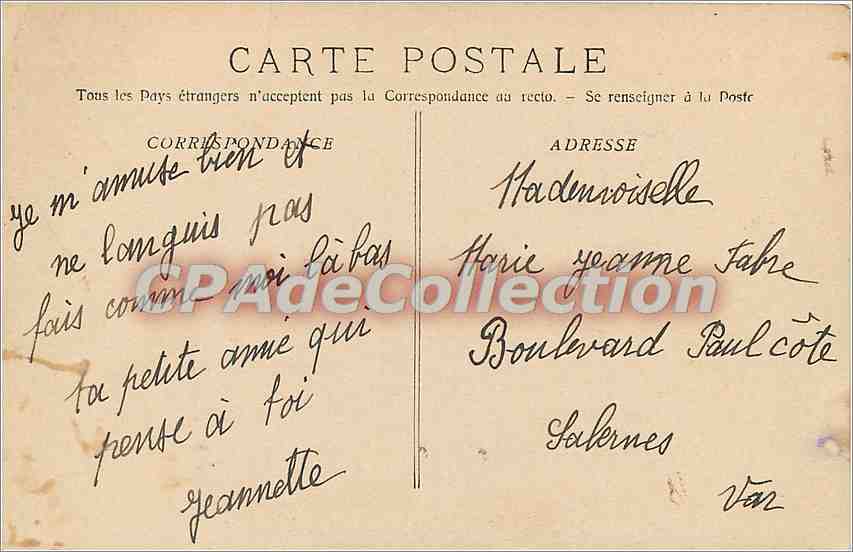 CARTE POSTALE
Tous les Pays étrangers n'acceptent pas la Correspondance au recto. – Se renseigner à la Poste
CORRESPONDANCE
je m'amuse bien et
ne languis pas
fais comme moi là bas
ta petite amie qui
pense à toi
Jeannette
ADRESSE
Mademoiselle
Marie Jeanne Fabre
Boulevard Paul côte
Salernes
Var
CPAdeCollection